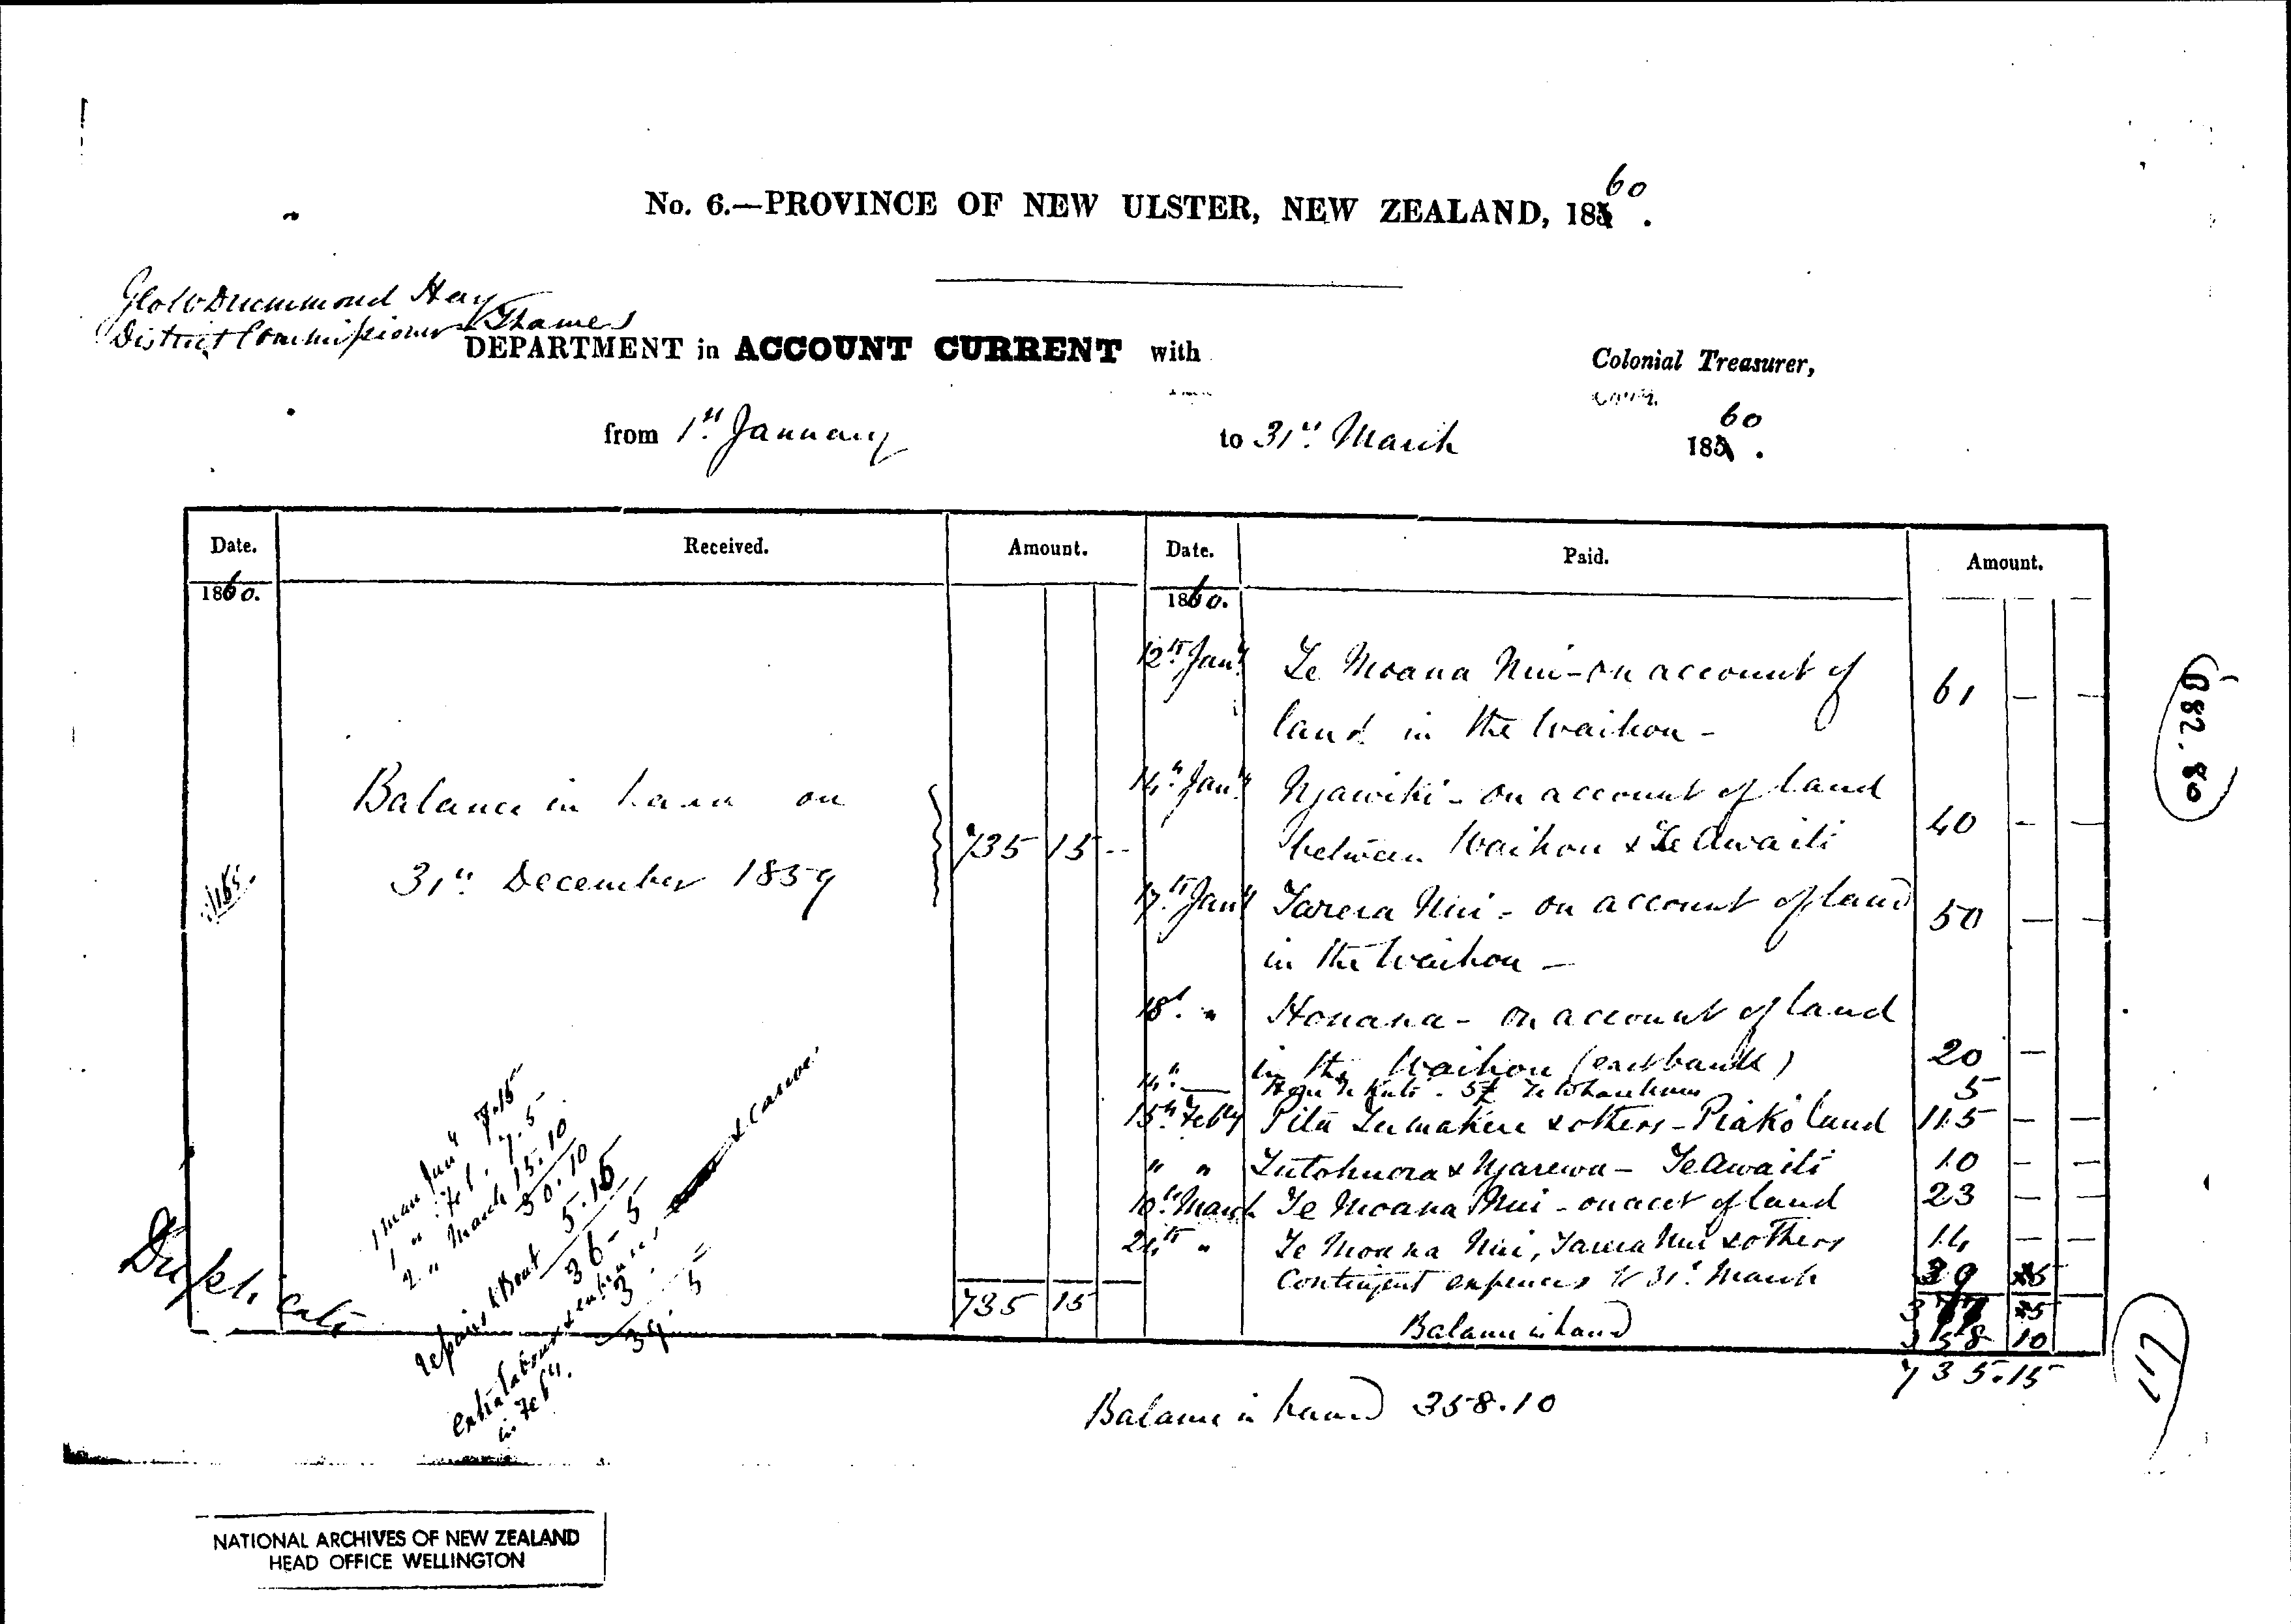 No. 6.—PROVINCE OF NEW ULSTER, NEW ZEALAND, 185 60.
Drummond Hay
District Commissioner Thames
DEPARTMENT in ACCOUNT CURRENT with Colonial Treasurer,
from 1st January to 31st March 185 60.
Date. Received. Amount. Date. Paid. Amount.
1860. 1860.
12th Jany Te Moana Nui - on account of 61 — —
land in the Waihou -
14th Jany Ngawiki - on account of land
between Waihou & Te Awaiti 40 — —
Balance in hand on
31st December 1859 735 15 --
17th Jany Tareia Nui - on account of land 50 — —
in the Waihou —
18th " Honana - on account of land
in the Waihou (east bank) 20 —
14th — 5£ 5
15th Feby Pita & others - Piako land 115 — —
" " & Ngarewa - Te Awaiti 10 — —
10th March Te Moana Nui - on acct of land 23 — —
24th " Te Moana Nui, Tareia Nui & others 14 — —
Contingent expences to 31st March 39 5
735 15
377 5
Balance in hand 358 10
735.15
Balance in hand 358.10
1 man Jany 7.15
1 " Feb. 7.5
2 " March 15.10
30.10
repairs to Boat 5.15
36-5
extra labour & & canoe
in Feby. 3
39. 5
Duplicate
082.80
NATIONAL ARCHIVES OF NEW ZEALAND
HEAD OFFICE WELLINGTON